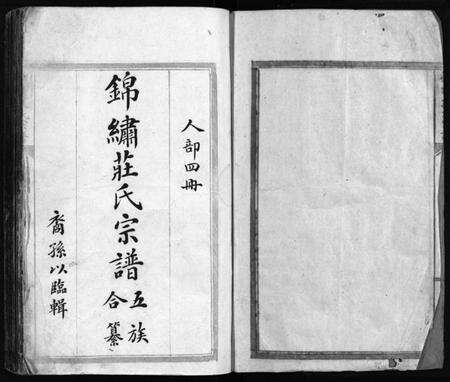 人部四冊
錦繡莊氏宗譜五族合纂
裔孫以臨輯